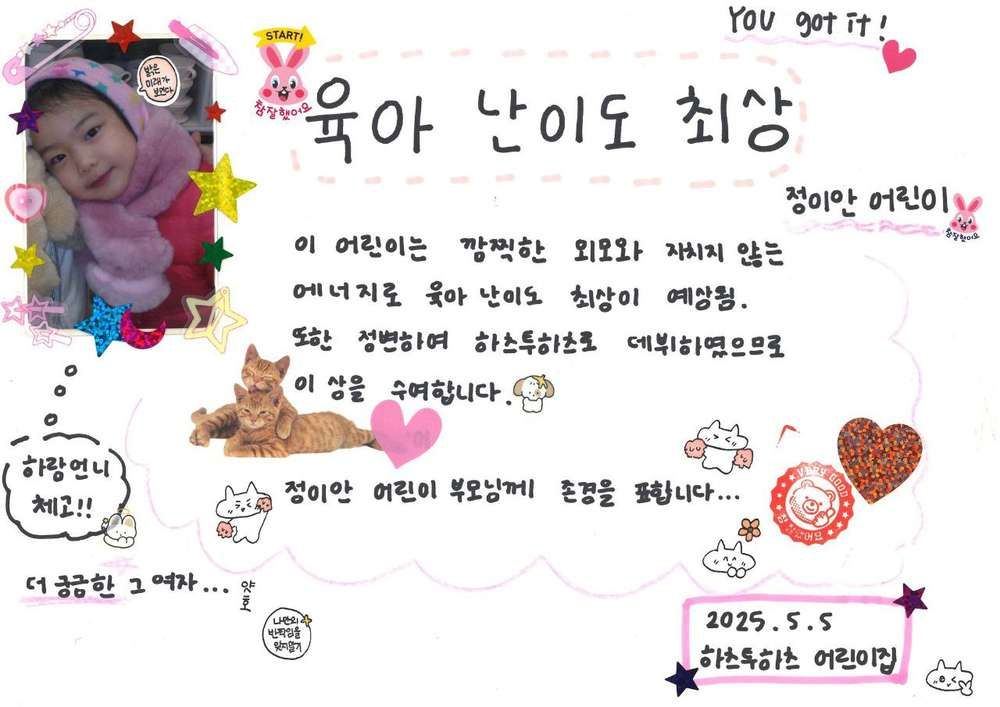 YOU got it!
START!
참잘했어요
밝은
미래가
보인다
육아 난이도 최상
정이안 어린이
참잘했어요
이 어린이는 깜찍한 외모와 지치지 않는
에너지로 육아 난이도 최상이 예상됨.
또한 정변하여 하츠투하츠로 데뷔하였으므로
이 상을 수여합니다.
정이안 어린이 부모님께 존경을 표합니다...
하랑언니
체고!!
VERY GOOD
참 잘했어요
더 궁금한 그 여자...
얏호
나만의
반짝임을
잊지말기
2025.5.5
하츠투하츠 어린이집